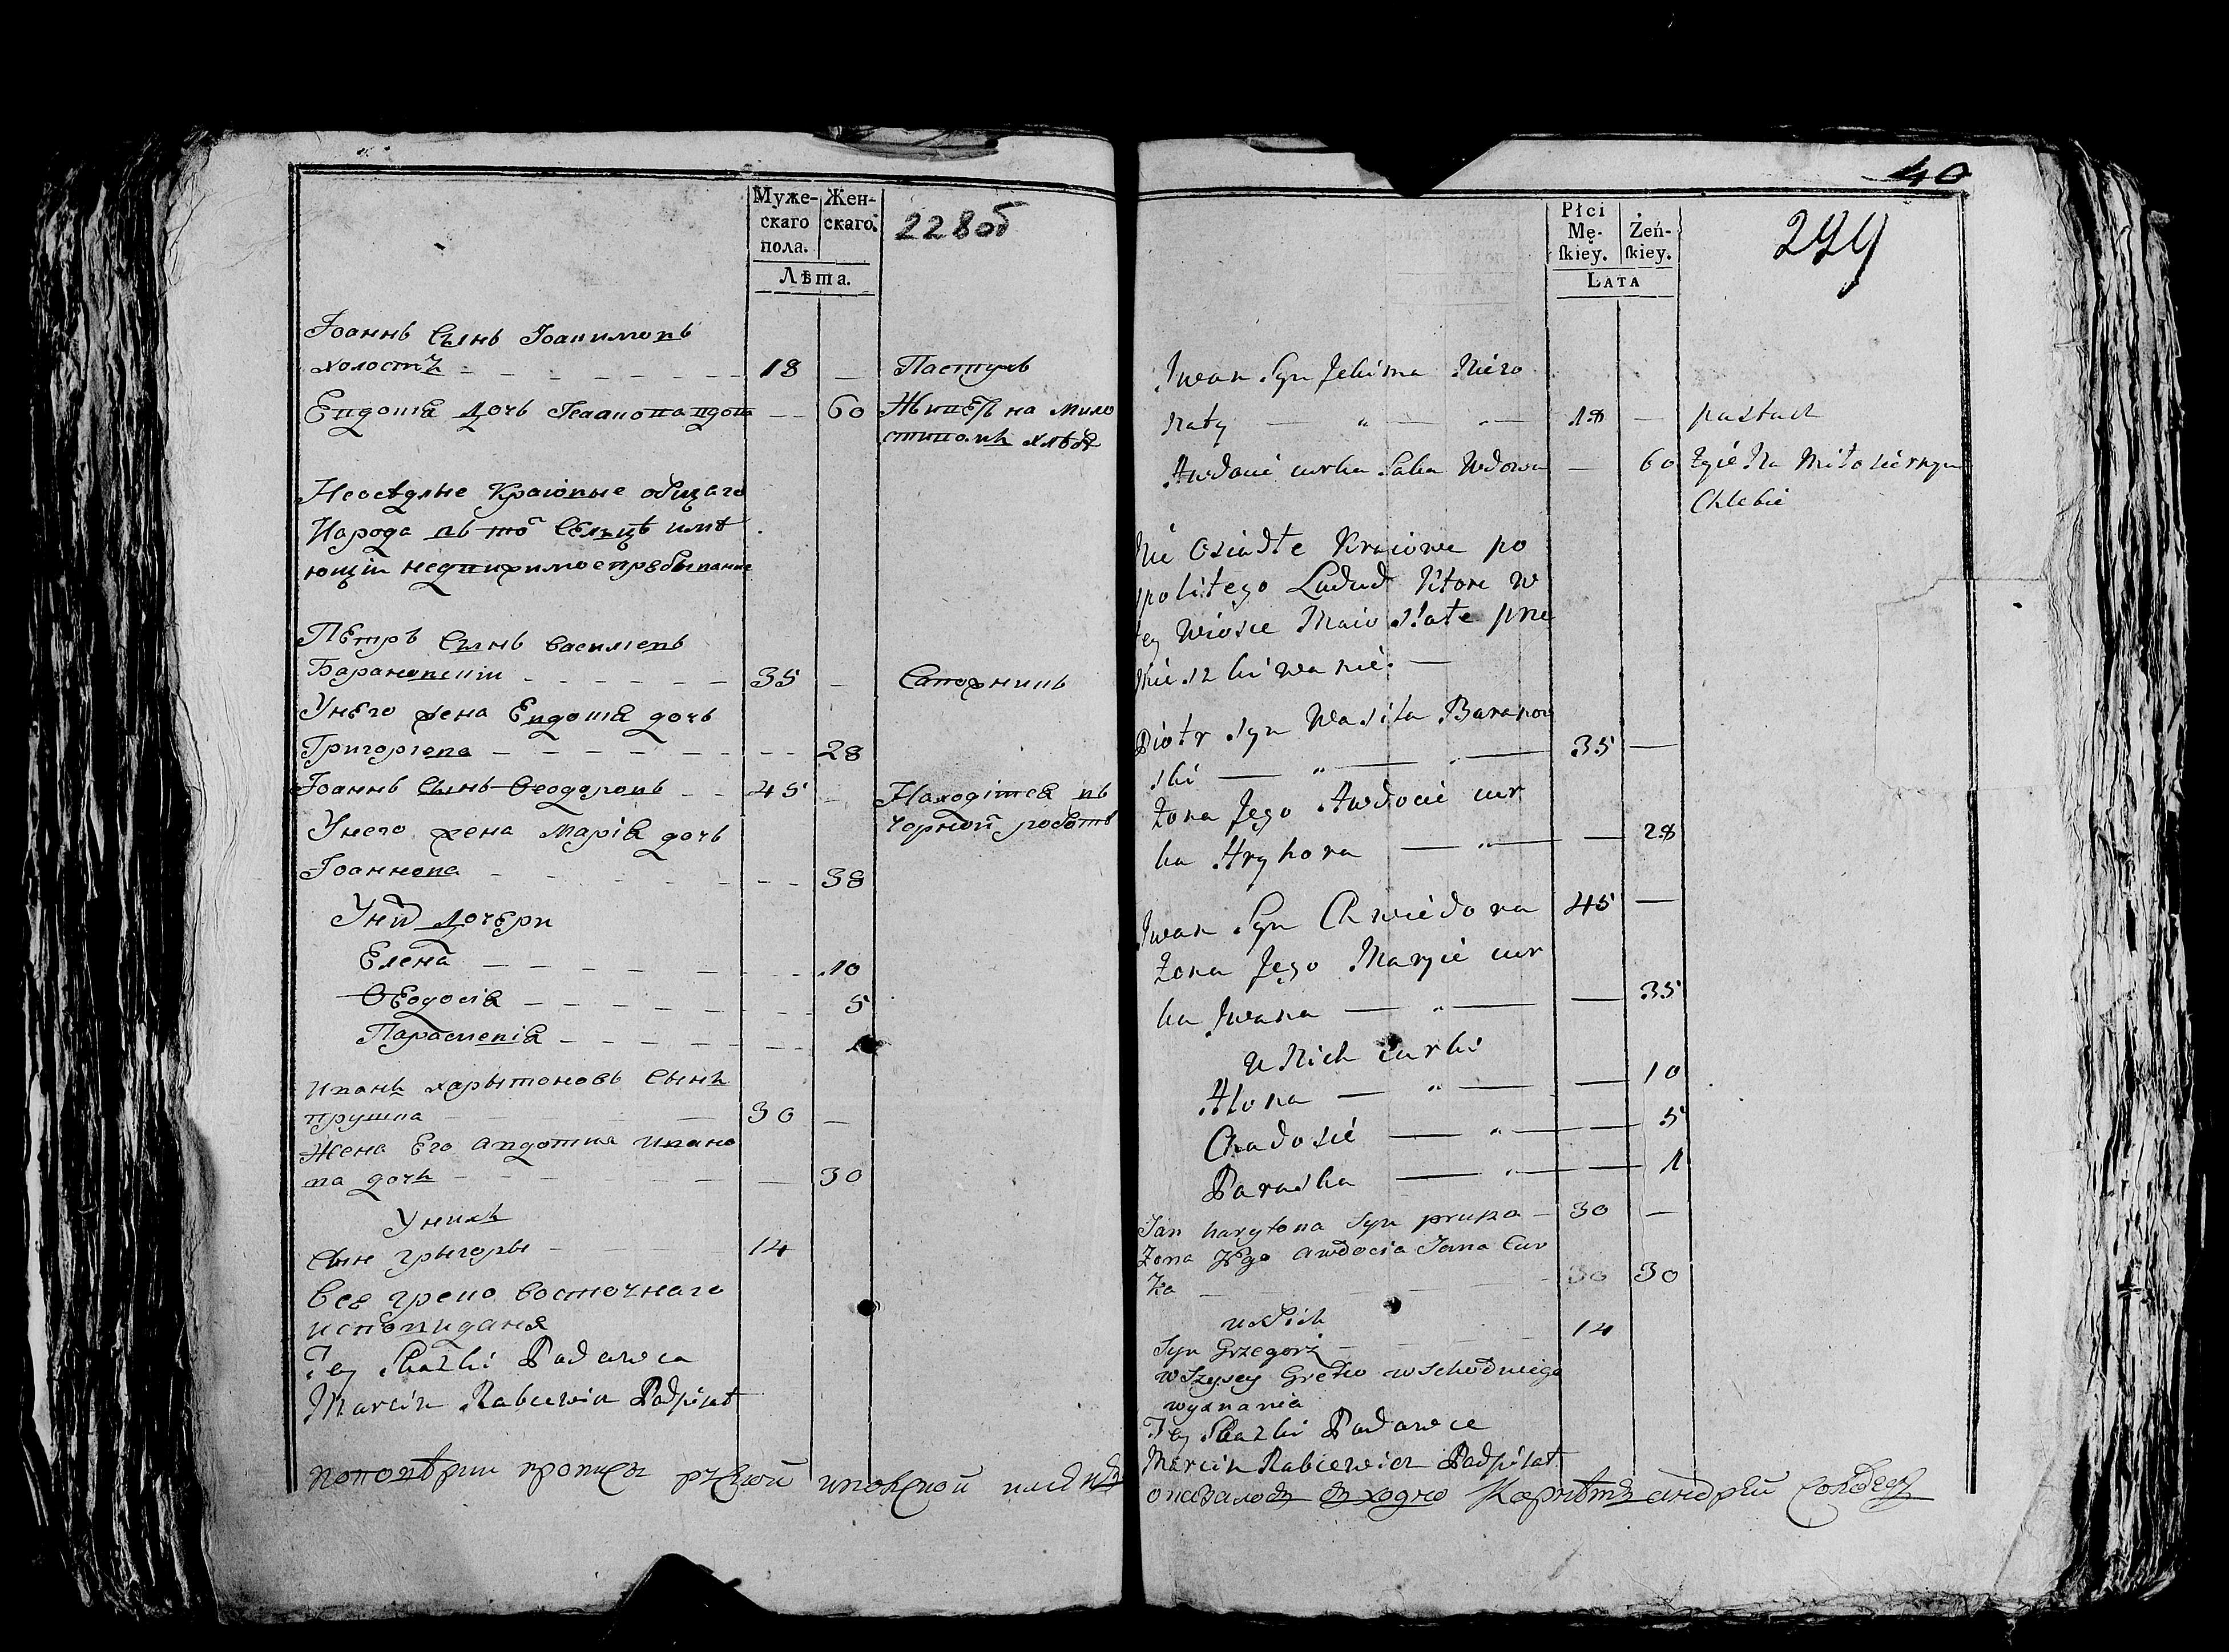 Муже-
скаго
пола.
Жен-
скаго.
Лѣта.
228об
Іоаннъ Сынъ Іоакимовъ
холостъ 18 — Пастухъ
Евдотія дочь вдова — 60 Живетъ на мило
стивомъ хлѣбѣ
Неосѣдлые Краіовые общаго
Народа въ то Сельцѣ имѣ
ющіи недвижимое пребываніе
Петръ Сынъ Василіевъ
Барановскій 35 — Сапожникъ
Унего жена Евдотія дочь
Григоріева — 28
Іоаннъ Сынъ Ѳеодоровъ 45 — Находітся въ
чорной роботѣ
Унего жена Марія дочь
Іоаннова — 38
Уних дочери
Елена 10
Ѳеодосія 5
Параскевія
Иванъ харытоновъ Сынъ
30 —
Жена Его Авдотия Ивано
ва дочъ — 30
Унихъ
Сын григоры 14
Все греко восточнаго
исповиданя
Tey Skazki Podawca
Marcin Rabcewicz Podpisał
40
Płci
Mę-
ſkiey.
Żeń-
ſkiey.
LATA
Jwan Syn Jekima Nieżo
naty 18 — pastuch
Awdocie curka Saka Wdowa — 60 Żyie Na Miłosiernym
Chlebie
Nie Osiadłe Kraiowe po
spolitego Ludu Ktore w
tey Wiosce Maio stałe prze
mieszkiwanie. —
Piotr Syn Wasila Baranow
ski 35 —
Żona Jego Awdocie cur
ka Hryhora — 28
Jwan Syn Chwiedora 45 —
Żona Jego Maryie cur
ka Jwana — 35
u Nich curki
Alona — 10
Chadosie — 5
Paraska — 1
Jan harytona Syn — 30 —
Żona Jego awdocia Jana Cur
ka 30 30
u Nich
Syn Grzegorz 14
wszyscy Greko wschodniego
wyznania
Tey Skazki Podawce
Marcin Rabcewicz Podpisał
андрей